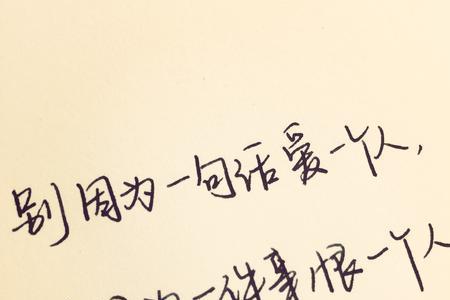 别因为一句话爱一个人,
因为一件事恨一个人